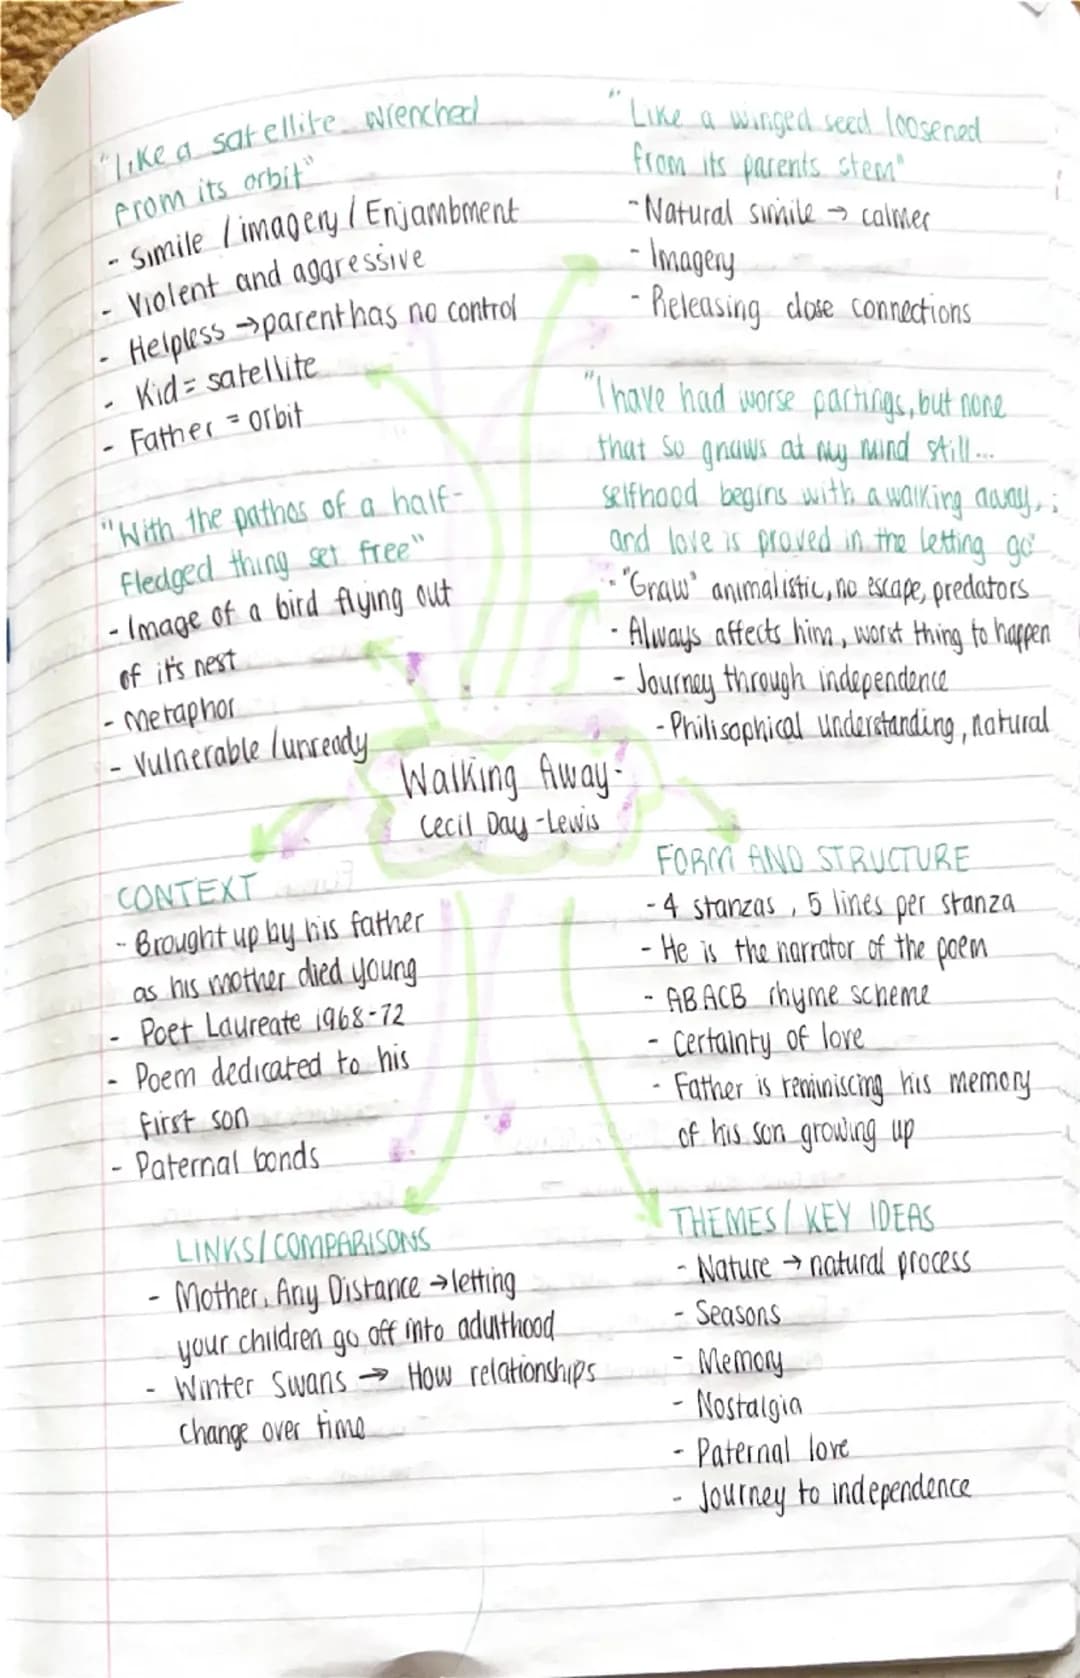 "like a satellite wrenched
from its orbit"
- Simile / imagery / Enjambment
- Violent and aggressive
- Helpless → parent has no control
- Kid = satellite
- Father = orbit
"With the pathos of a half-
fledged thing set free"
- Image of a bird flying out
of it's nest
- Metaphor
- Vulnerable / unready
"Like a winged seed loosened
from its parents stem"
- Natural simile → calmer
- Imagery
- Releasing close connections
"I have had worse partings, but none
that so gnaws at my mind still...
selfhood begins with a walking away,
and love is proved in the letting go"
- "Gnaw" animalistic, no escape, predators
- Always affects him, worst thing to happen
- Journey through independence
- Philisophical understanding, natural
Walking Away-
Cecil Day-Lewis
CONTEXT
- Brought up by his father
as his mother died young
- Poet Laureate 1968-72
- Poem dedicated to his
first son
- Paternal bonds
FORM AND STRUCTURE
- 4 stanzas, 5 lines per stanza
- He is the narrator of the poem
- ABACB rhyme scheme
- Certainty of love
- Father is reminiscing his memory
of his son growing up
LINKS / COMPARISONS
- Mother, Any Distance → letting
your children go off into adulthood
- Winter Swans → How relationships
change over time
THEMES / KEY IDEAS
- Nature → natural process
- Seasons
- Memory
- Nostalgia
- Paternal love
- Journey to independence